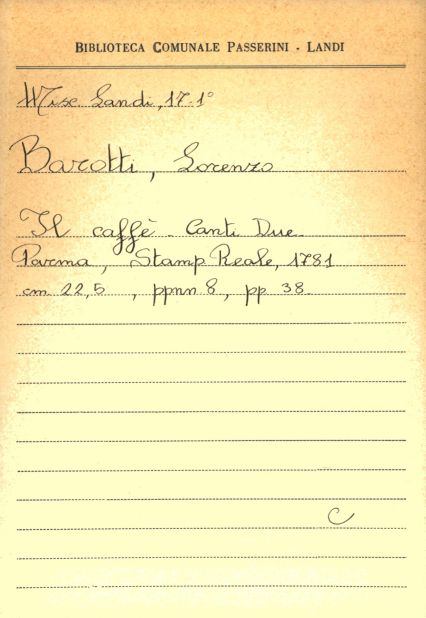 BIBLIOTECA COMUNALE PASSERINI - LANDI
Misc. Landi, 17.1°
Barotti, Lorenzo
Il caffè. Canti Due.
Parma, Stamp Reale, 1781
cm 22,5, ppnn 8, pp 38.
C